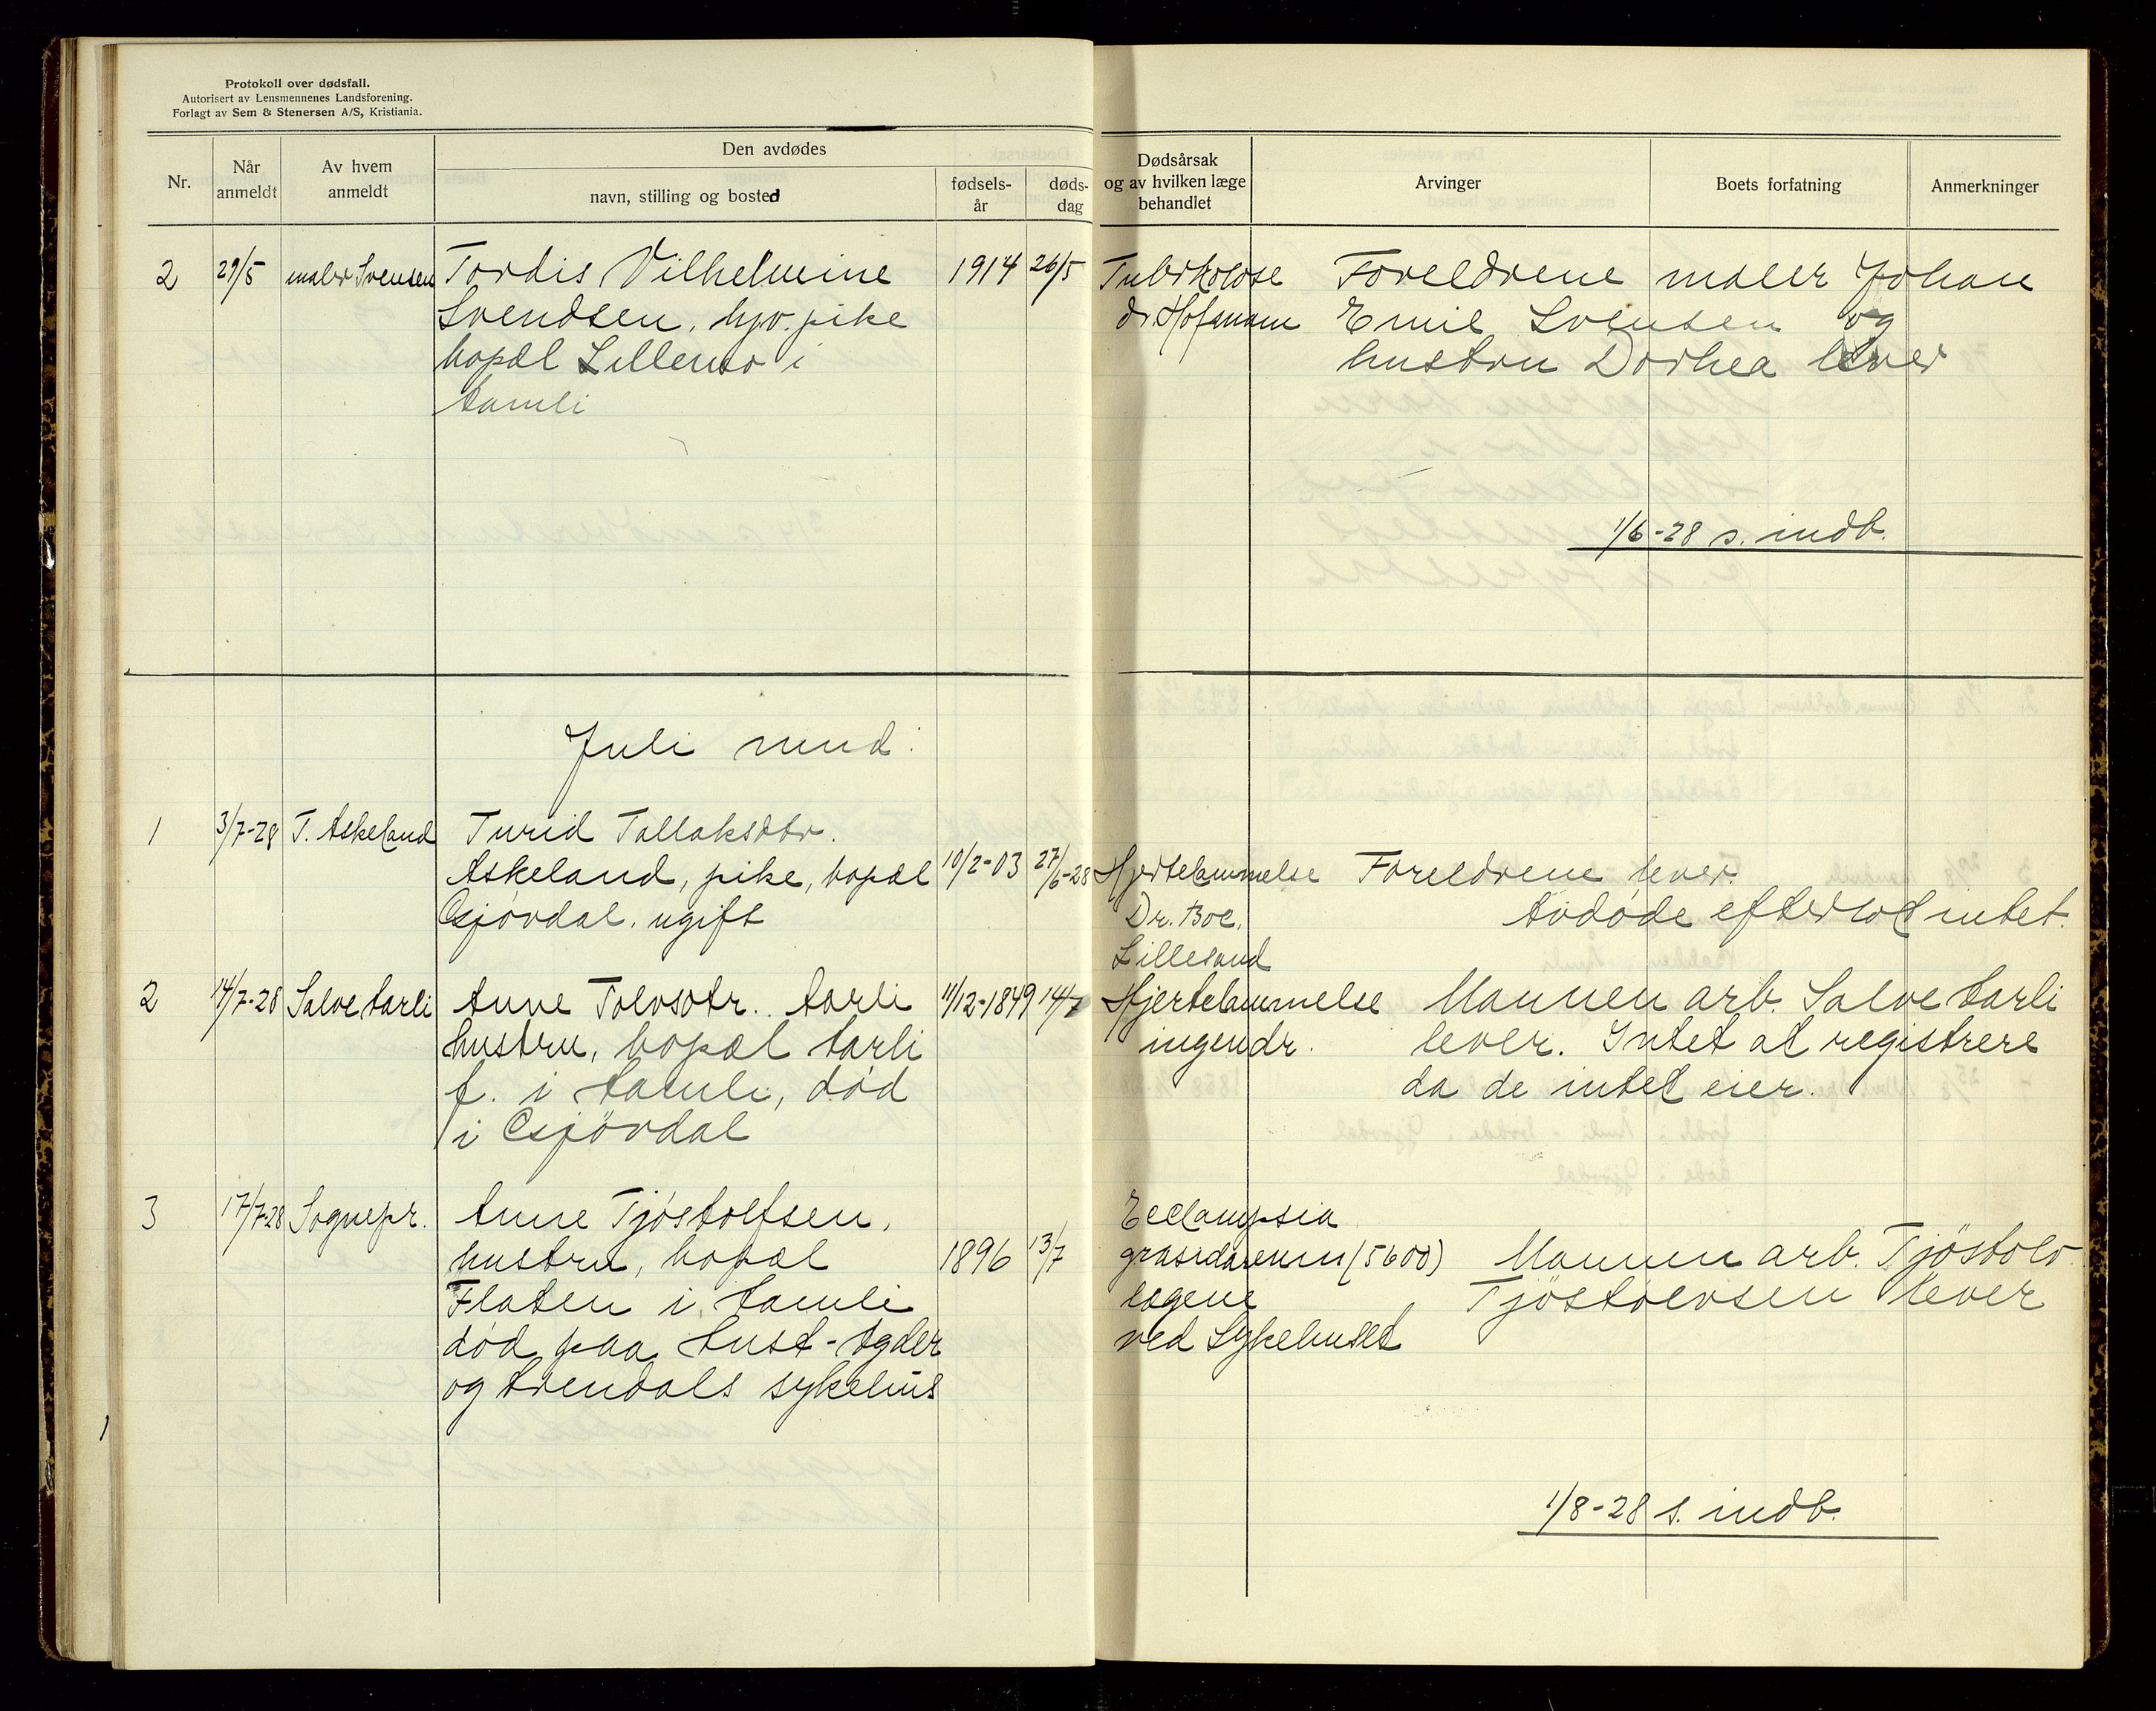 Protokoll over dødsfall.
Autorisert av Lensmennenes Landsforening.
Forlagt av Sem & Stenersen A/S, Kristiania.
Nr.
Når anmeldt
Av hvem anmeldt
Den avdødes
navn, stilling og bosted
fødsels-år
døds-dag
Dødsårsak og av hvilken læge behandlet
Arvinger
Boets forfatning
Anmerkninger
2 29/5 maler Svensen Tordis Vilhelmine 1914 26/5 Tuberkolose Foreldrene maler Johan
Svendsen, hjv. pike dr. Hofmann Emil Svensen og
bopæl Lillemo i hustru Dorhea lever
Aamli
1/6-28 s. indb.
Juli mnd:
1 3/7-28 T. Askeland Turid Tallaksdtr.
Askeland, pike, bopæl 10/2-03 27/6-28 Hjertelammelse Foreldrene lever.
Gjövdal. ugift Dr. Boe, Avdøde efterlot intet.
Lillesand
2 14/7-28 Salve Aarli Anne Tolvsdtr. Aarli 11/12-1849 14/7 Hjertelammelse Mannen arb. Salve Aarli
hustru, bopæl Aarli ingen dr. lever. Intet at registrere
f. i Aamli, død da de intet eier.
i Gjövdal
3 17/7-28 Sognepr. Anne Tjöstolfsen, Eclampsia
hustru, bopæl 1896 13/7 (5600) Mannen arb. Tjöstolv
Flaten i Aamli lægene Tjöstolvsen lever
død paa Aust-Agder ved Sykehuset
og Arendals sykehus
1/8-28 s. indb.